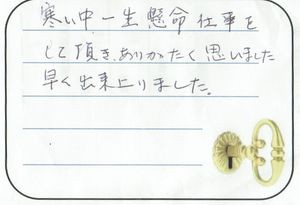 寒い中一生懸命仕事を
して頂き、ありがたく思いました
早く出来上りました。